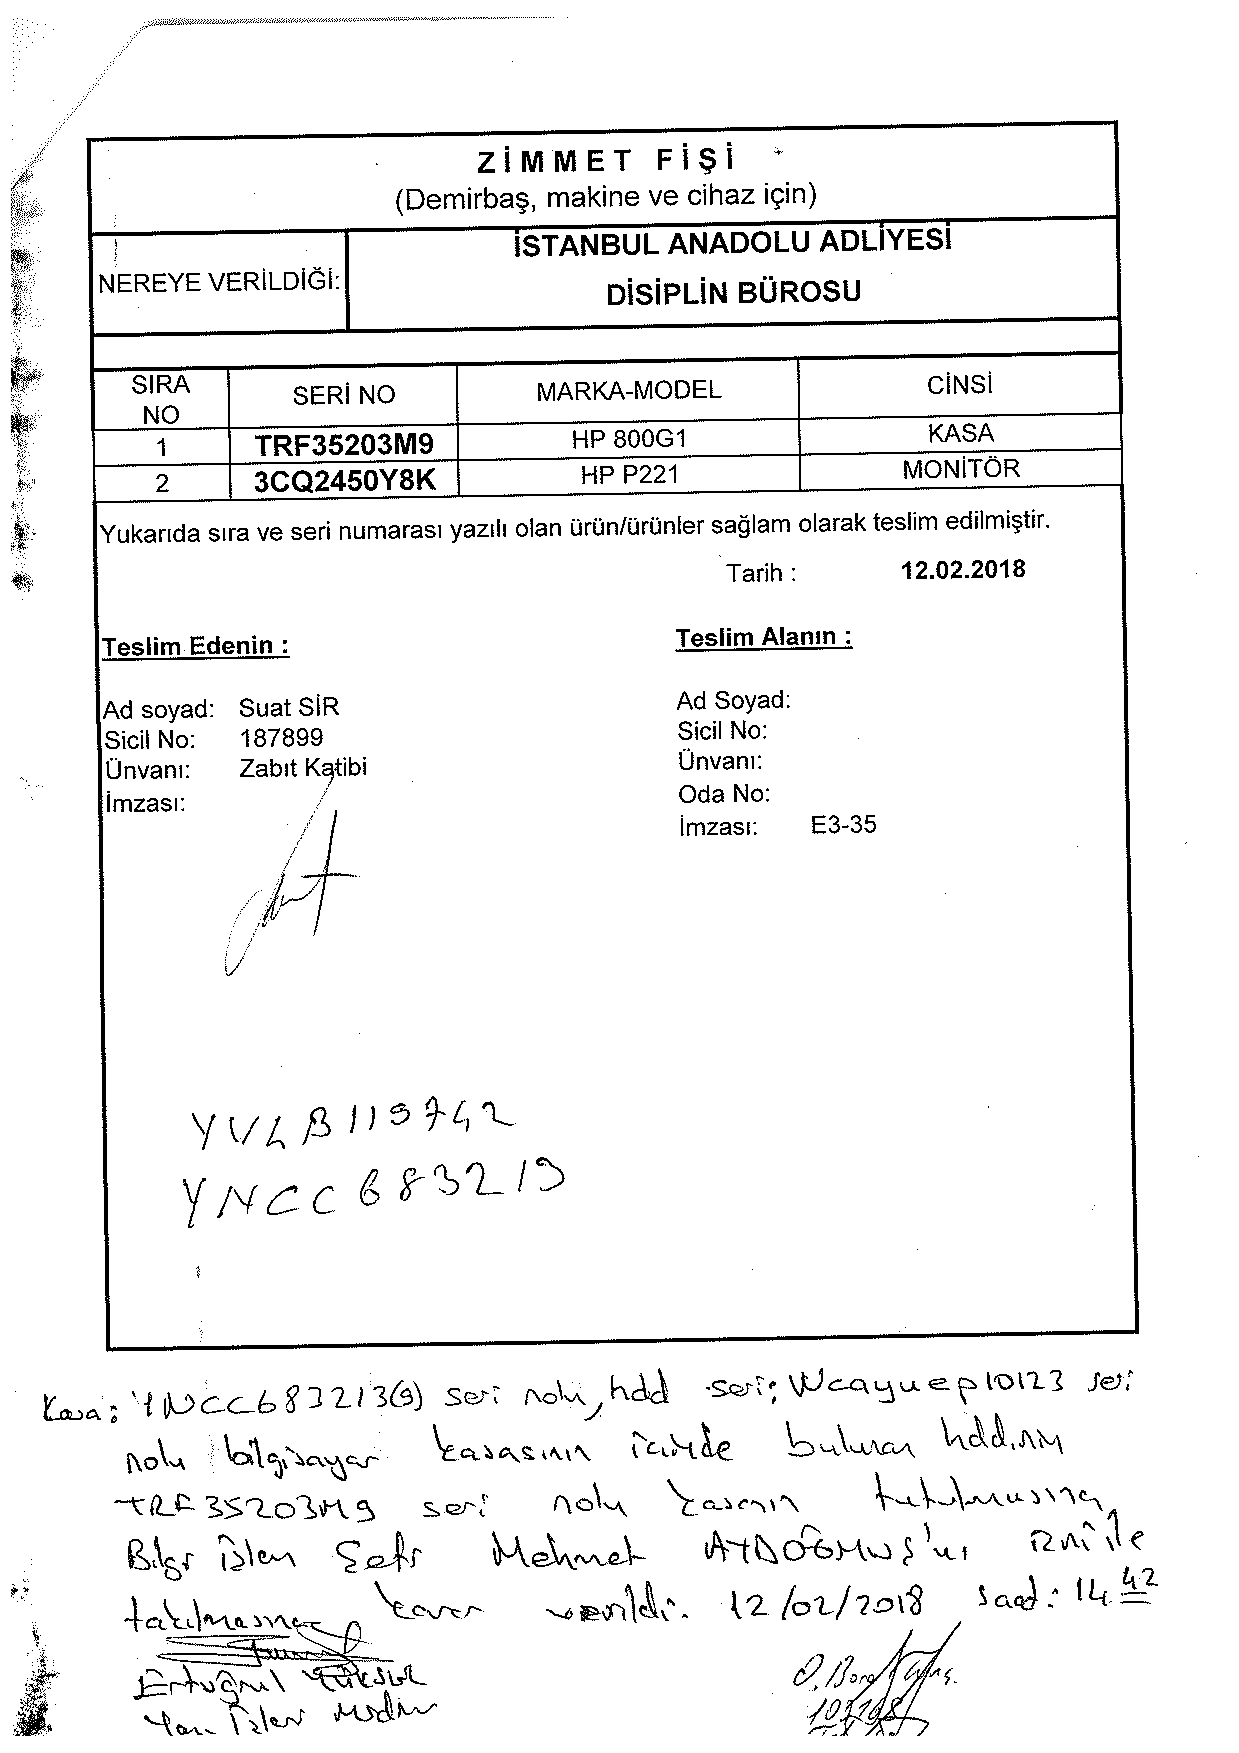 ZİMMET FİŞİ
(Demirbaş, makine ve cihaz için)
NEREYE VERİLDİĞİ:
İSTANBUL ANADOLU ADLİYESİ
DİSİPLİN BÜROSU
SIRA NO SERİ NO MARKA-MODEL CİNSİ
1 TRF35203M9 HP 800G1 KASA
2 3CQ2450Y8K HP P221 MONİTÖR
Yukarıda sıra ve seri numarası yazılı olan ürün/ürünler sağlam olarak teslim edilmiştir.
Tarih : 12.02.2018
Teslim Edenin :
Ad soyad: Suat SİR
Sicil No: 187899
Ünvanı: Zabıt Katibi
İmzası:
Teslim Alanın :
Ad Soyad:
Sicil No:
Ünvanı:
Oda No:
İmzası: E3-35
YVLB119742
YNCC683219
Kasa: YNCC683213(9) seri nolu, hdd seri: Wcayuep10123 seri
nolu bilgisayar kasasının içinde bulunan hddnin
TRF35203M9 seri nolu kasanın
Bilgi İşlem Şefi Mehmet AYDOĞMUŞ'un izni ile
takılmasına karar verildi. 12/02/2018 saat: 14 42
Ertuğrul YÜKSEL
Yazı İşleri Müdürü